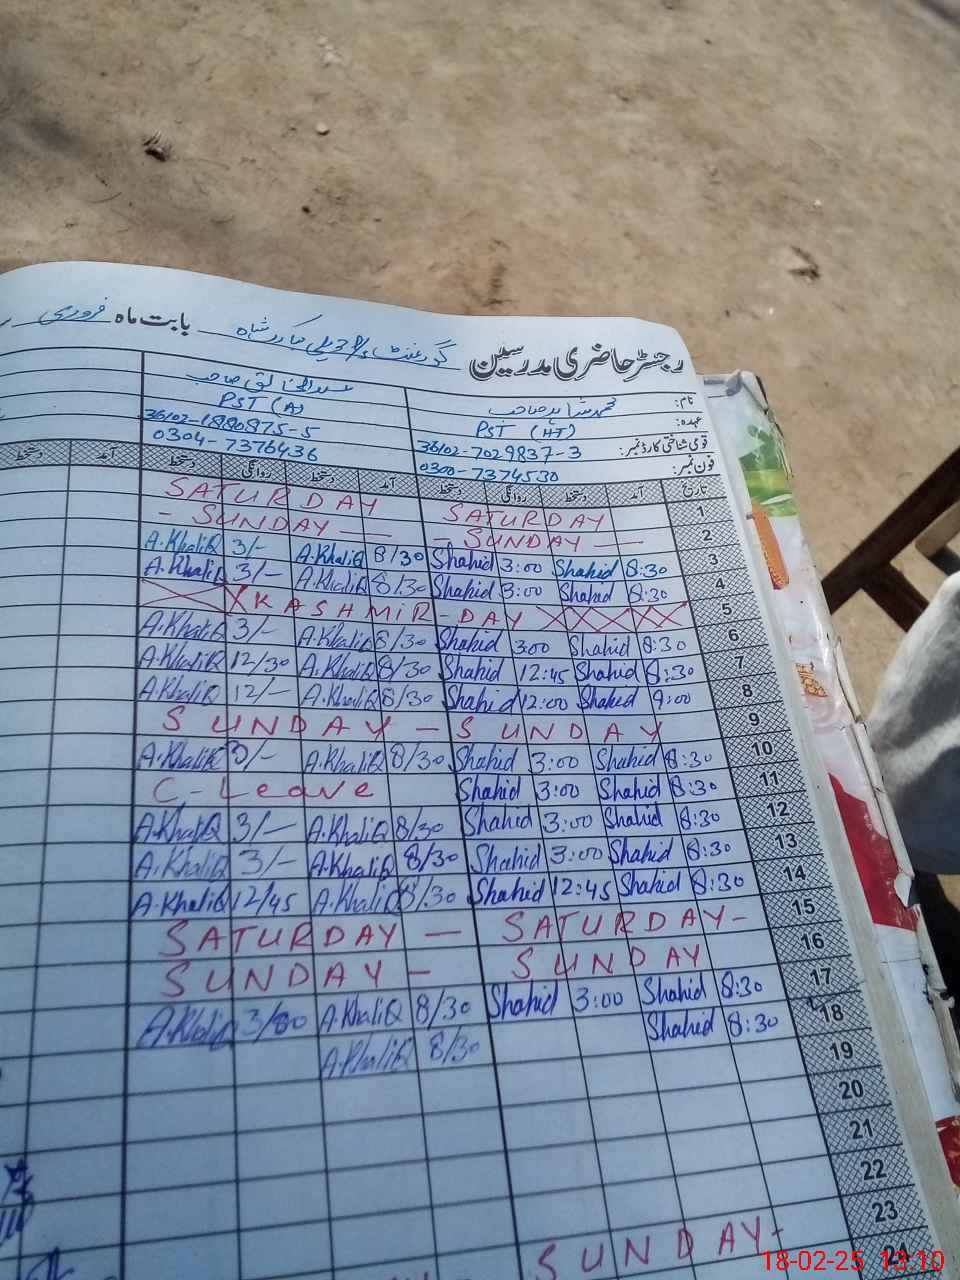 رجسٹر حاضری مدرسین گورنمنٹ بابت ماہ فروری
نام: محمد شاہد صاحب عبدالخالق صاحب
عہدہ: PST (HT) PST (A)
قومی شناختی کارڈ نمبر: 36102-7029837-3 36102-1880875-5
فون نمبر: 0300-7374530 0304-7376436
تاریخ آمد دستخط روانگی دستخط آمد دستخط روانگی دستخط آمد دستخط
SATURDAY SATURDAY 1
- SUNDAY — - SUNDAY — 2
A.KhaliQ 3/- A.KhaliQ 8/30 Shahid 3:00 Shahid 8:30 3
A.KhaliQ 3/- A.KhaliQ 8/30 Shahid 3:00 Shahid 8:30 4
KASHMIR-DAY 5
A.KhaliQ 3/- A.KhaliQ 8/30 Shahid 3:00 Shahid 8:30 6
A.KhaliQ 12/30 A.KhaliQ 8/30 Shahid 12:45 Shahid 8:30 7
A.KhaliQ 12/- A.KhaliQ 8/30 Shahid 12:00 Shahid 9:00 8
SUNDAY - SUNDAY 9
A.KhaliQ 3/- A.KhaliQ 8/30 Shahid 3:00 Shahid 8:30 10
C-Leave Shahid 3:00 Shahid 8:30 11
A.KhaliQ 3/- A.KhaliQ 8/30 Shahid 3:00 Shahid 8:30 12
A.KhaliQ 3/- A.KhaliQ 8/30 Shahid 3:00 Shahid 8:30 13
A.KhaliQ 12/45 A.KhaliQ 8/30 Shahid 12:45 Shahid 8:30 14
SATURDAY — SATURDAY- 15
SUNDAY - SUNDAY 16
A.KhaliQ A.KhaliQ 8/30 Shahid 3:00 Shahid 8:30 17
A.KhaliQ 8/30 Shahid 8:30 18
19
20
21
22
23
SUNDAY- 24
18-02-25 13:10